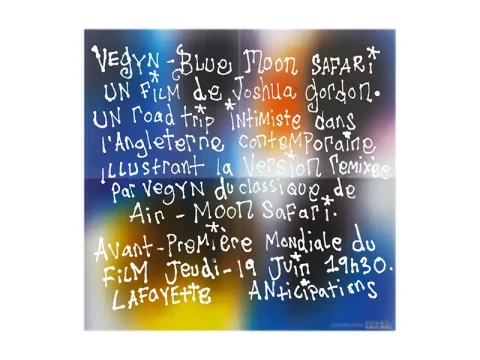 VEGYN - BLUE MOON SAFARI
UN FILM de Joshua gordon.
UN road trip intimiste dans
l'Angleterre contemporaine
illustrant la Version remixée
par Vegyn du classique de
Air - Moon Safari.
Avant-Première Mondiale du
Film Jeudi-19 Juin 19h30.
LAFAYETTE ANticipations